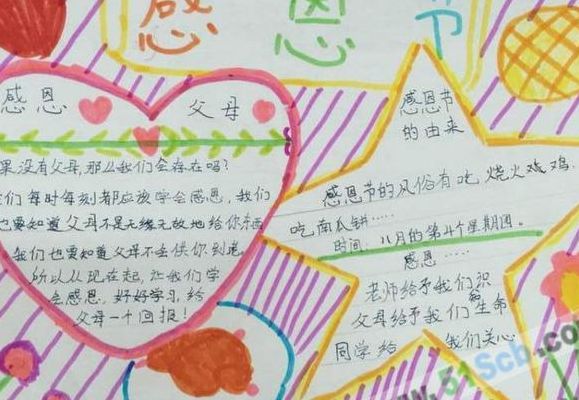 感恩节
感恩 父母
果没有父母,那么我们会存在吗?
们每时每刻都应该学会感恩,我们
也要知道父母不是无缘无故地给你东西
我们也要知道父母不会供你到老
所以从现在起,让我们学
会感恩,好好学习,给
父母一个回报!
感恩节
的由来
感恩节的风俗有吃,烧火鸡,
吃南瓜饼……
时间:八月的第4个星期四。
感恩……
老师给予我们知识
父母给予我们生命
同学给 我们关心
www.51Scb.co